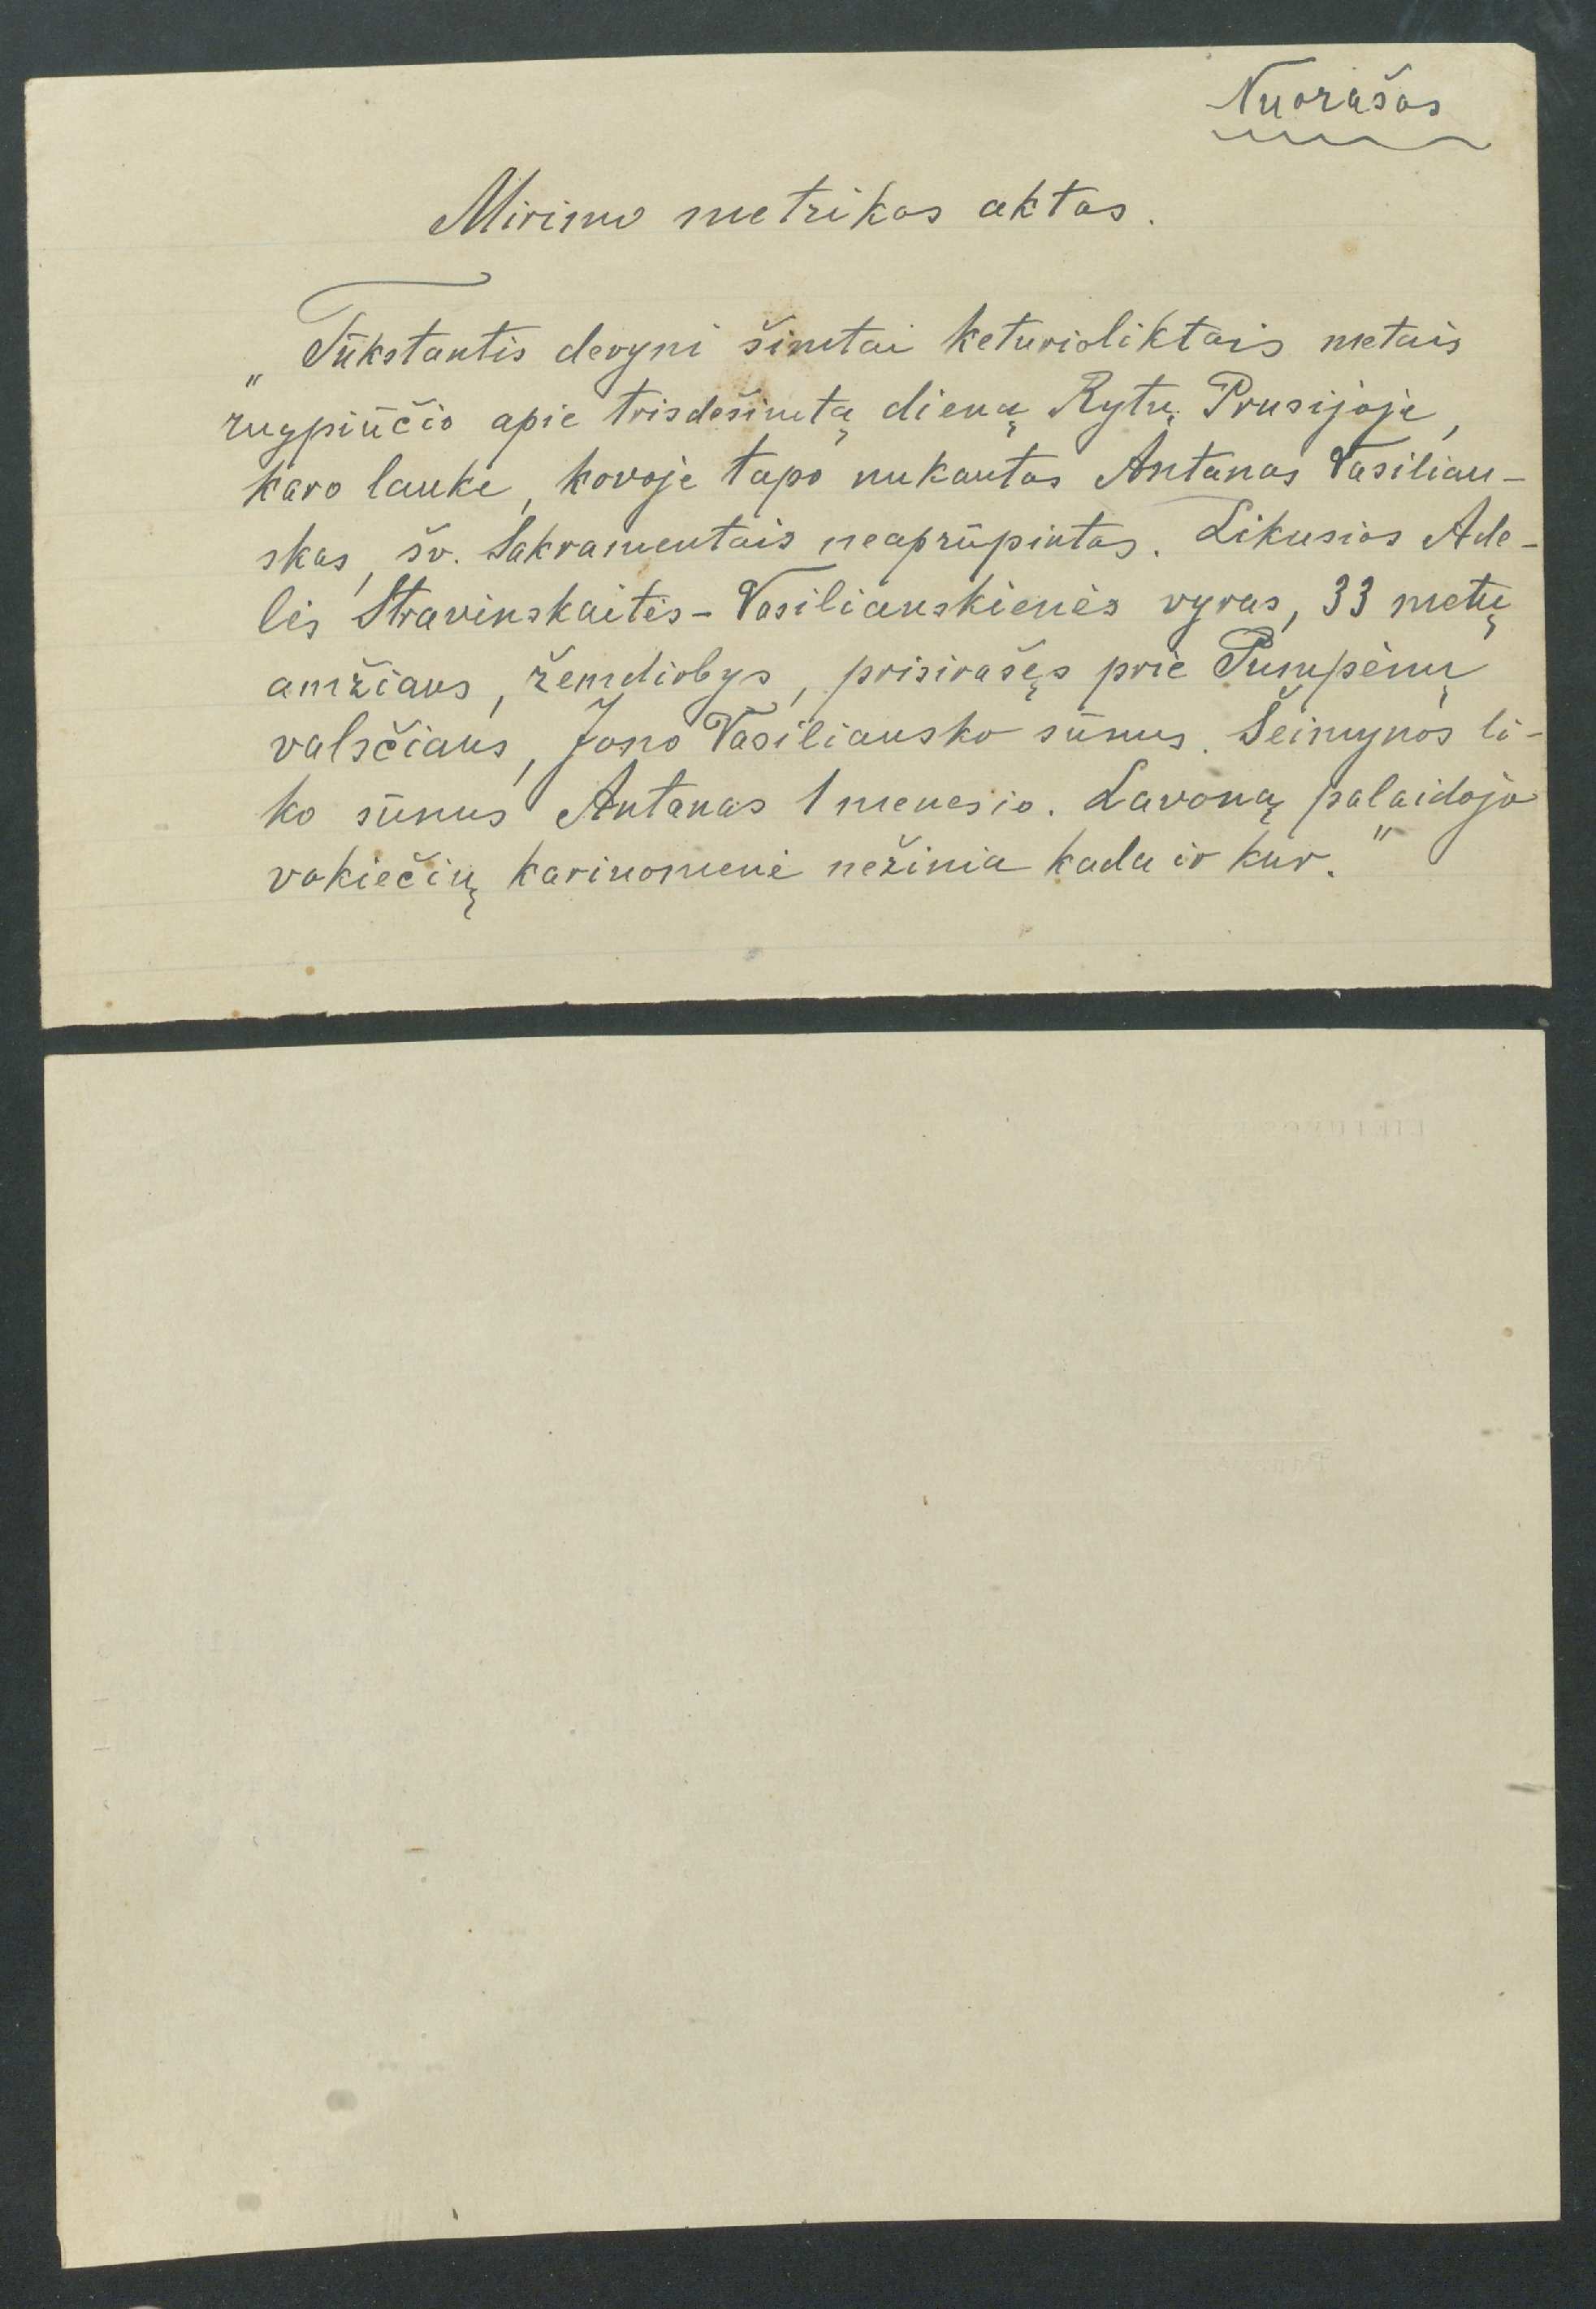 Nuorašas
Mirimo metrikos aktas.
„Tūkstantis devyni šimtai keturioliktais metais
rugpiūčio apie trisdešimtą dieną Rytų Prusijoje,
karo lauke, kovoje tapo nukautas Antanas Vasiliau-
skas, šv. Sakramentais neaprūpintas. Likusios Ade-
lės Stravinskaitės-Vasiliauskienės vyras, 33 metų
amžiaus, žemdirbys, prisirašęs prie Pumpėnų
valsčiaus, Jono Vasiliausko sūnus. Šeimynos li-
ko sūnus Antanas 1 menesio. Lavoną palaidojo
vokiečių kariuomenė nežinia kada ir kur."